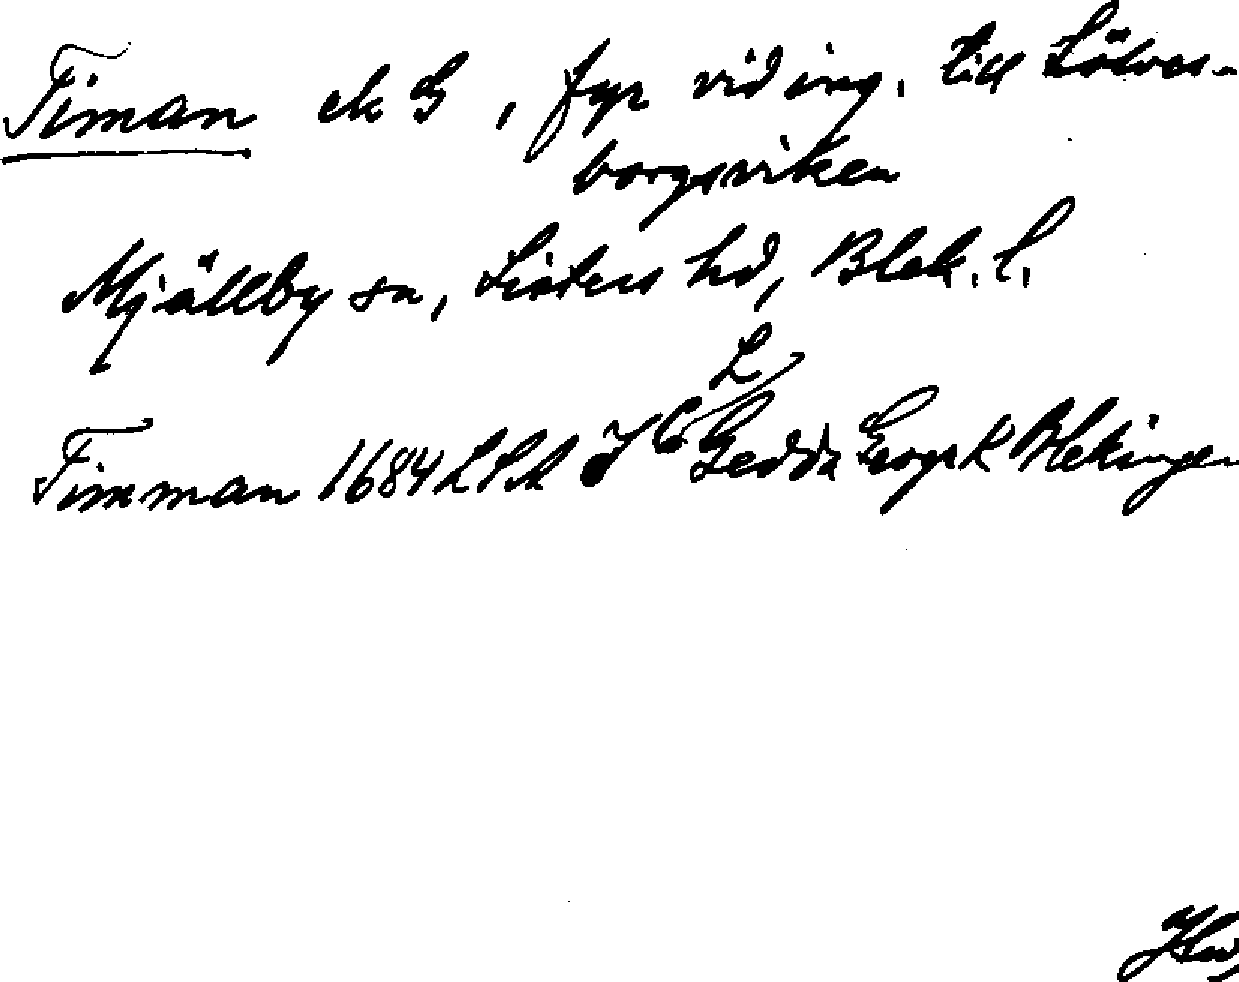 Timan ek G, fyr vid ing. till Sölves-
borgsviken
Mjällby sn, Listers hd, Blek. l.
L
Timman 1684 Gedda Blekingen